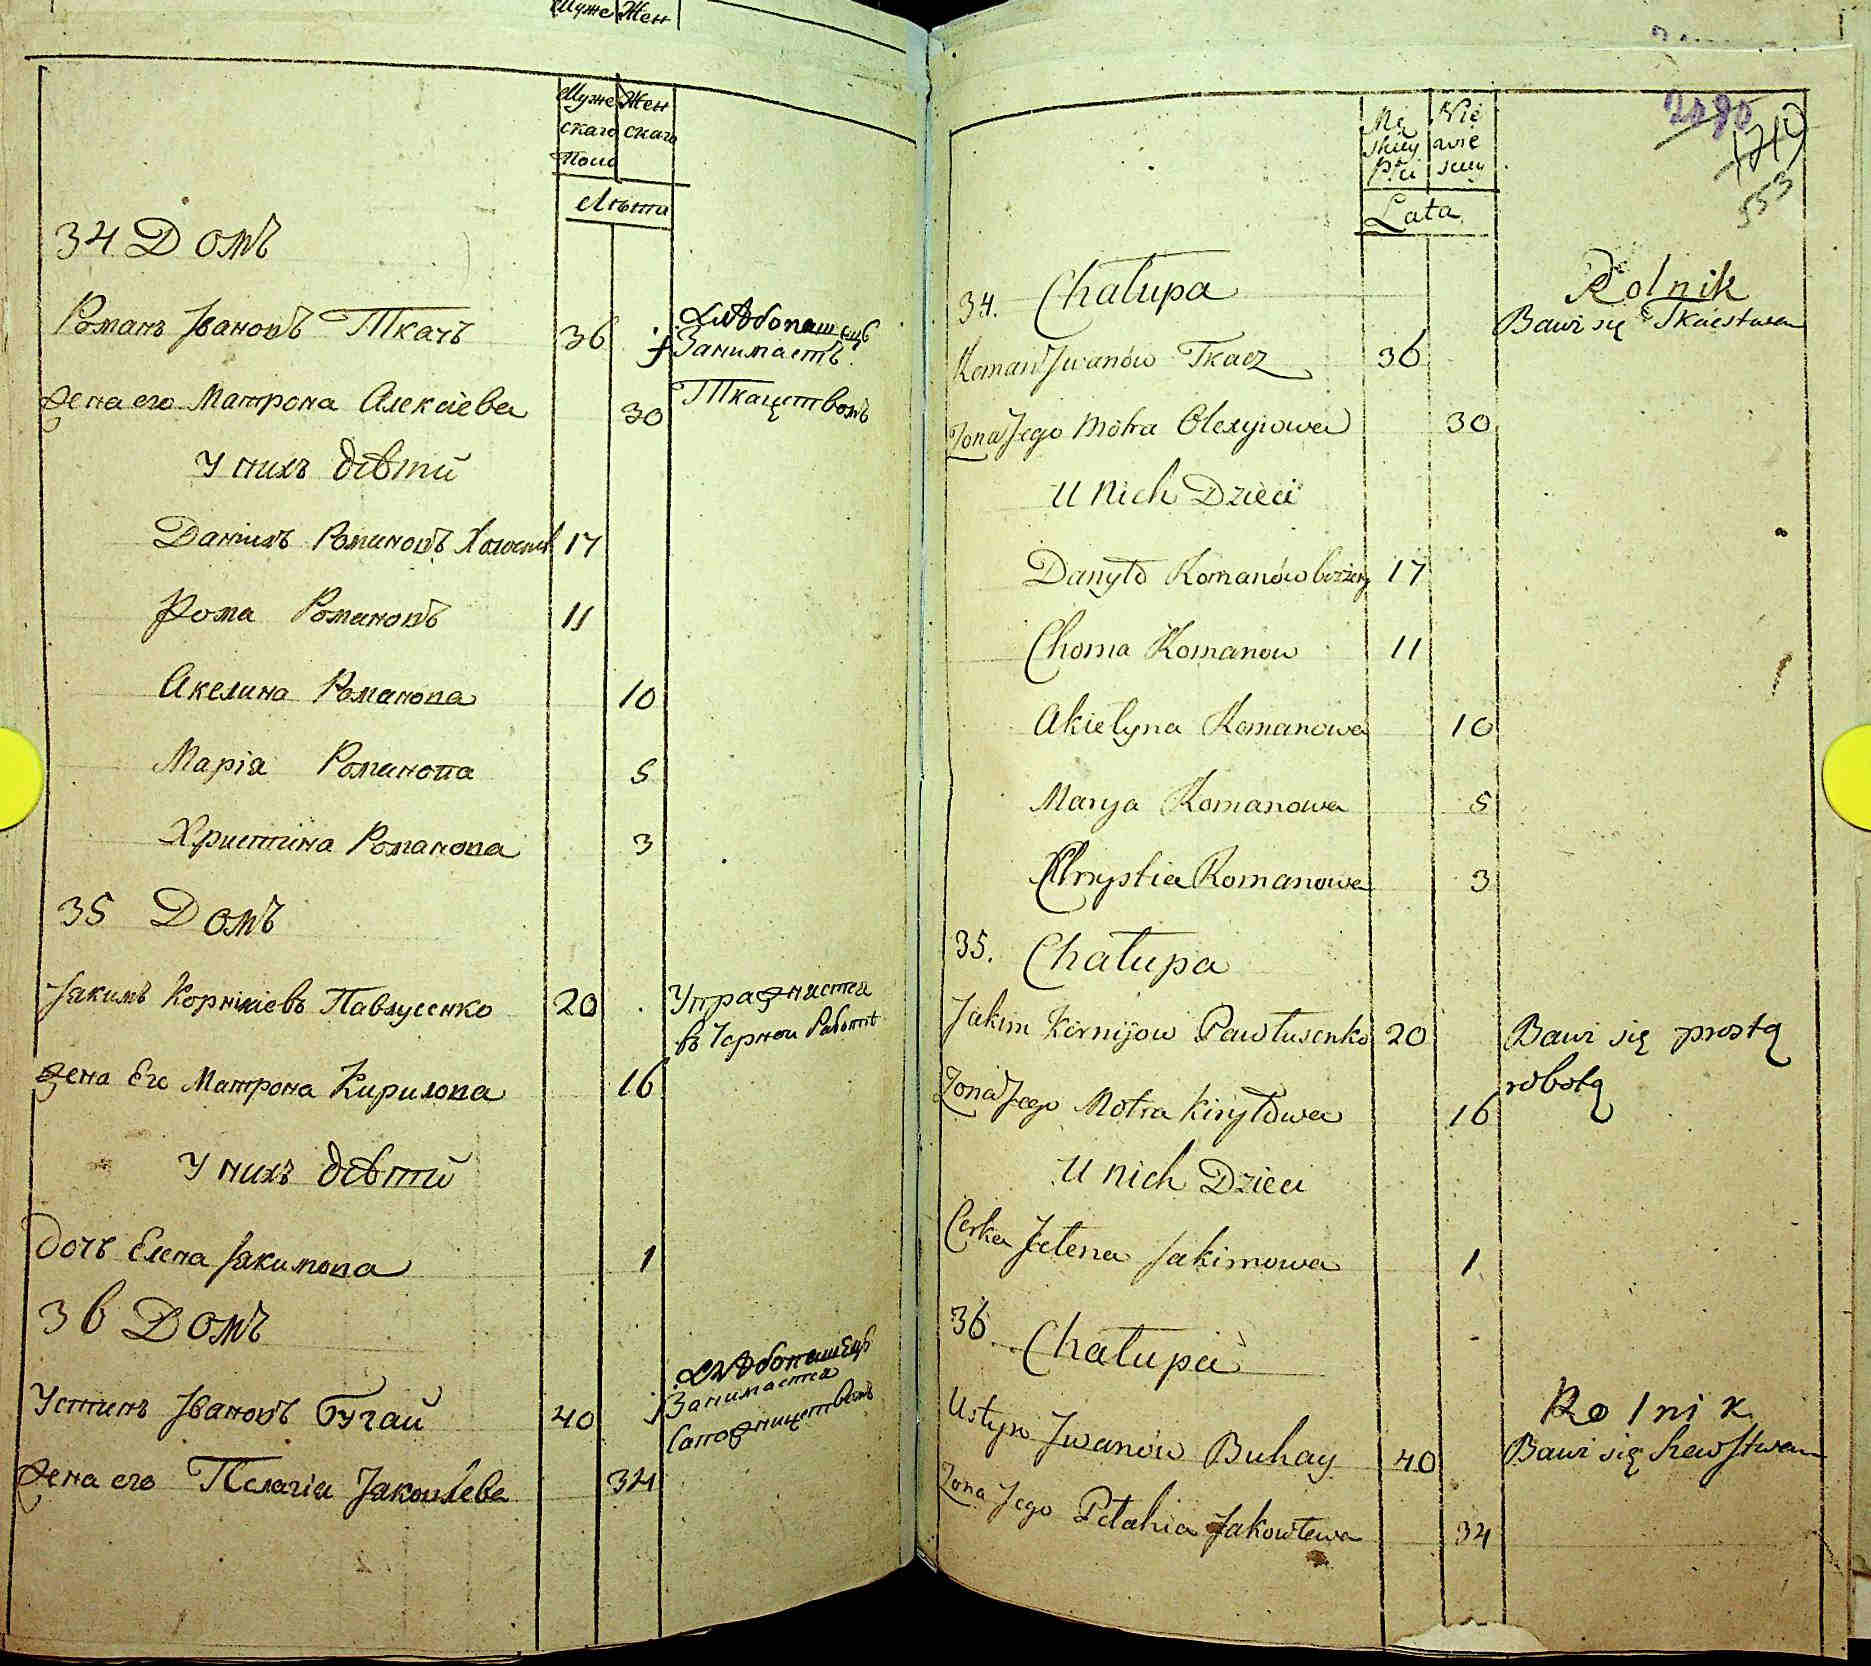 Муже Жен
Муже Жен
скаго скаго
Пола
Лѣта
34 Домъ
Романъ Ивановъ Ткачъ 36
Хлѣбопашецъ
Занимаетъ
Ткацетвомъ
Жена его Матрона Алексіева 30
У нихъ дѣти
Данилъ Романовъ Холостъ 17
Фома Романовъ 11
Акелина Романова 10
Марія Романова 5
Христина Романова 3
35 Домъ
Іакимъ Корніліевъ Павлусенко 20
Упражнястя
въ Чорной Работѣ
Жена Его Матрона Кирилова 16
У нихъ дѣти
Дочъ Елена Іакимова 1
36 Домъ
Хлѣбопашецъ
Занимается
Сапожницетвомъ
Устинъ Ивановъ Бугай 40
Жена его Пелагія Іаковлева 34
2090
553
Mę Nie
skiey wie
Płci sciey
Lata
34. Chałupa
Rolnik
Bawi się Tkactwem
Roman Jwanów Tkacz 36
Zona Jego Motra Olexyiowa 30
U Nich Dzieci
Danyło Romanów bezżeny 17
Choma Romanow 11
Akielyna Romanowa 10
Marya Romanowa 5
Chrystia Romanowa 3
35. Chałupa
Jakim Kornijow Pawłusenko 20
Bawi się prostą
robotą
Zona Jego Motra Kiryłowa 16
U nich Dzieci
Corka Jełena Jakimowa 1
36 Chałupa
Rolnik
Ustyn Jwanów Buhay 40
Bawi się Szewstwem
Zona Jego Pełahia Jakowlewa 34